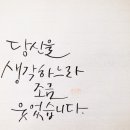 당신을
생각하느라
조금
웃었습니다.